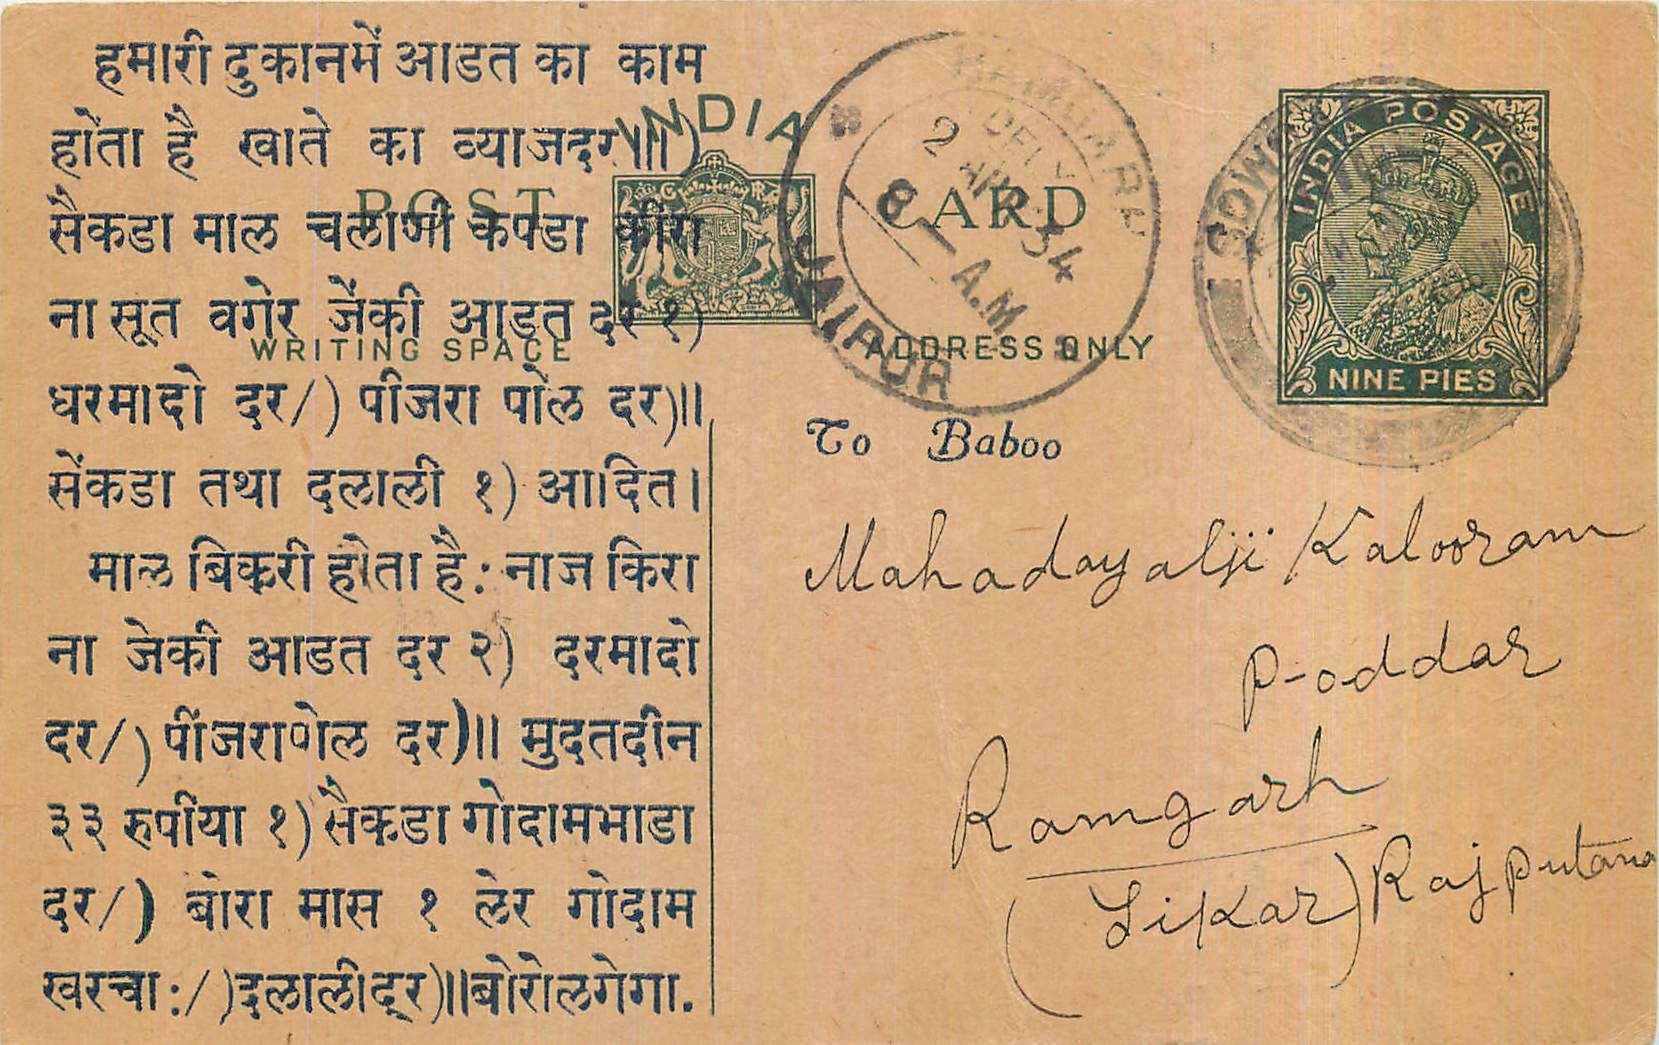 हमारी दुकानमें आडत का काम
होता है खाते का व्याजदर॥)
सैकडा माल चलाणी कपडा कीरा
ना सूत वगेर जेंकी आडत दर १)
धरमादो दर/) पीजरा पोल दर)॥
सेंकडा तथा दलाली १) आदित।
माल बिकरी होता है: नाज किरा
ना जेकी आडत दर २) दरमादो
दर/) पींजरापोल दर)॥ मुदतदीन
३३ रुपीया १) सैकडा गोदामभाडा
दर/) बोरा मास १ लेर गोदाम
खरचा:/)दलालीदर)॥बोरोलगेगा.
INDIA
POST CARD
WRITING SPACE
ADDRESS ONLY
2 APR 34
8 - A.M
JAIPUR
INDIA POSTAGE
NINE PIES
To Baboo
Mahadayalji Kalooram
Poddar
Ramgarh
(Sikar) Rajputana